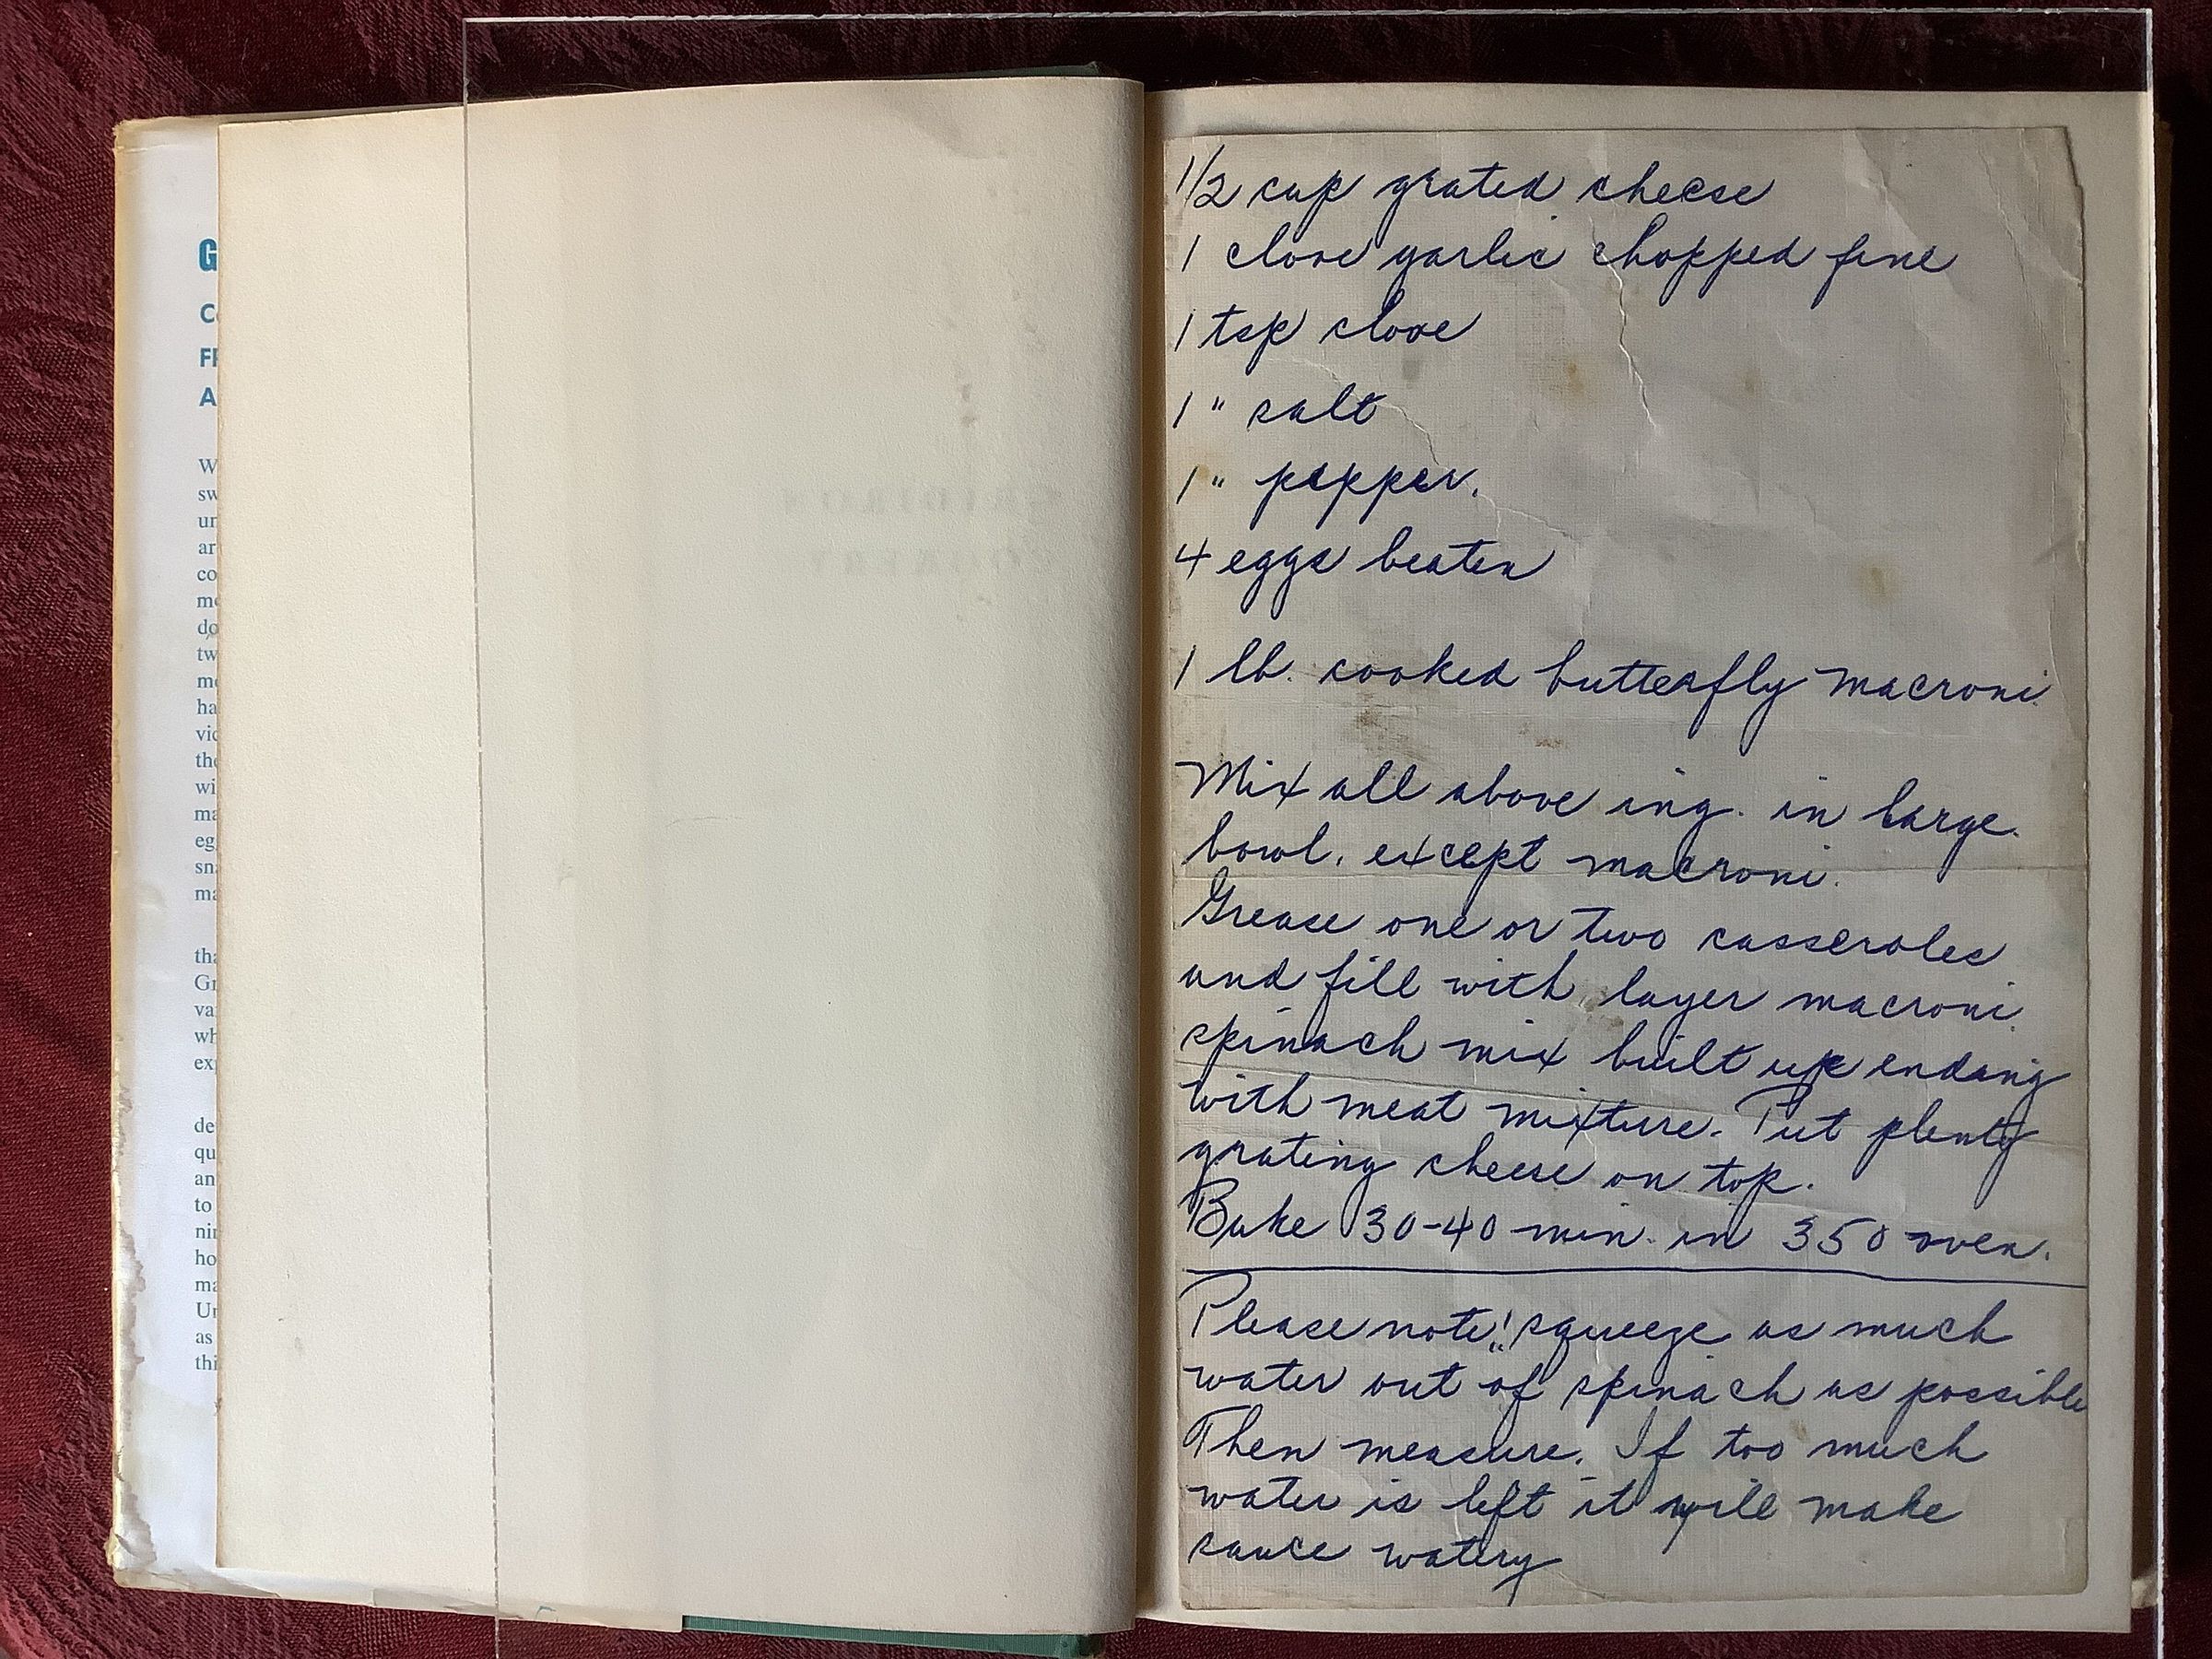 G
C
FR
A
W
sw
un
ar
co
me
do
tw
me
ha
vic
the
wi
ma
eg
sn
ma
tha
Gr
va
wh
ex
de
qu
an
to
nin
ho
ma
Un
as
thi
GRIDIRON
COOKERY
1/2 cup grated cheese
1 clove garlic chopped fine
1 tsp clove
1 " salt
1 " pepper.
4 eggs beaten
1 lb. cooked butterfly macroni.
Mix all above ing. in large
bowl, except macroni.
Grease one or two casseroles
and fill with layer macroni
spinach mix built up ending
with meat mixture. Put plenty
grating cheese on top.
Bake 30-40 min. in 350 oven.
Please note! squeeze as much
water out of spinach as possible
Then measure. If too much
water is left it will make
sauce watery